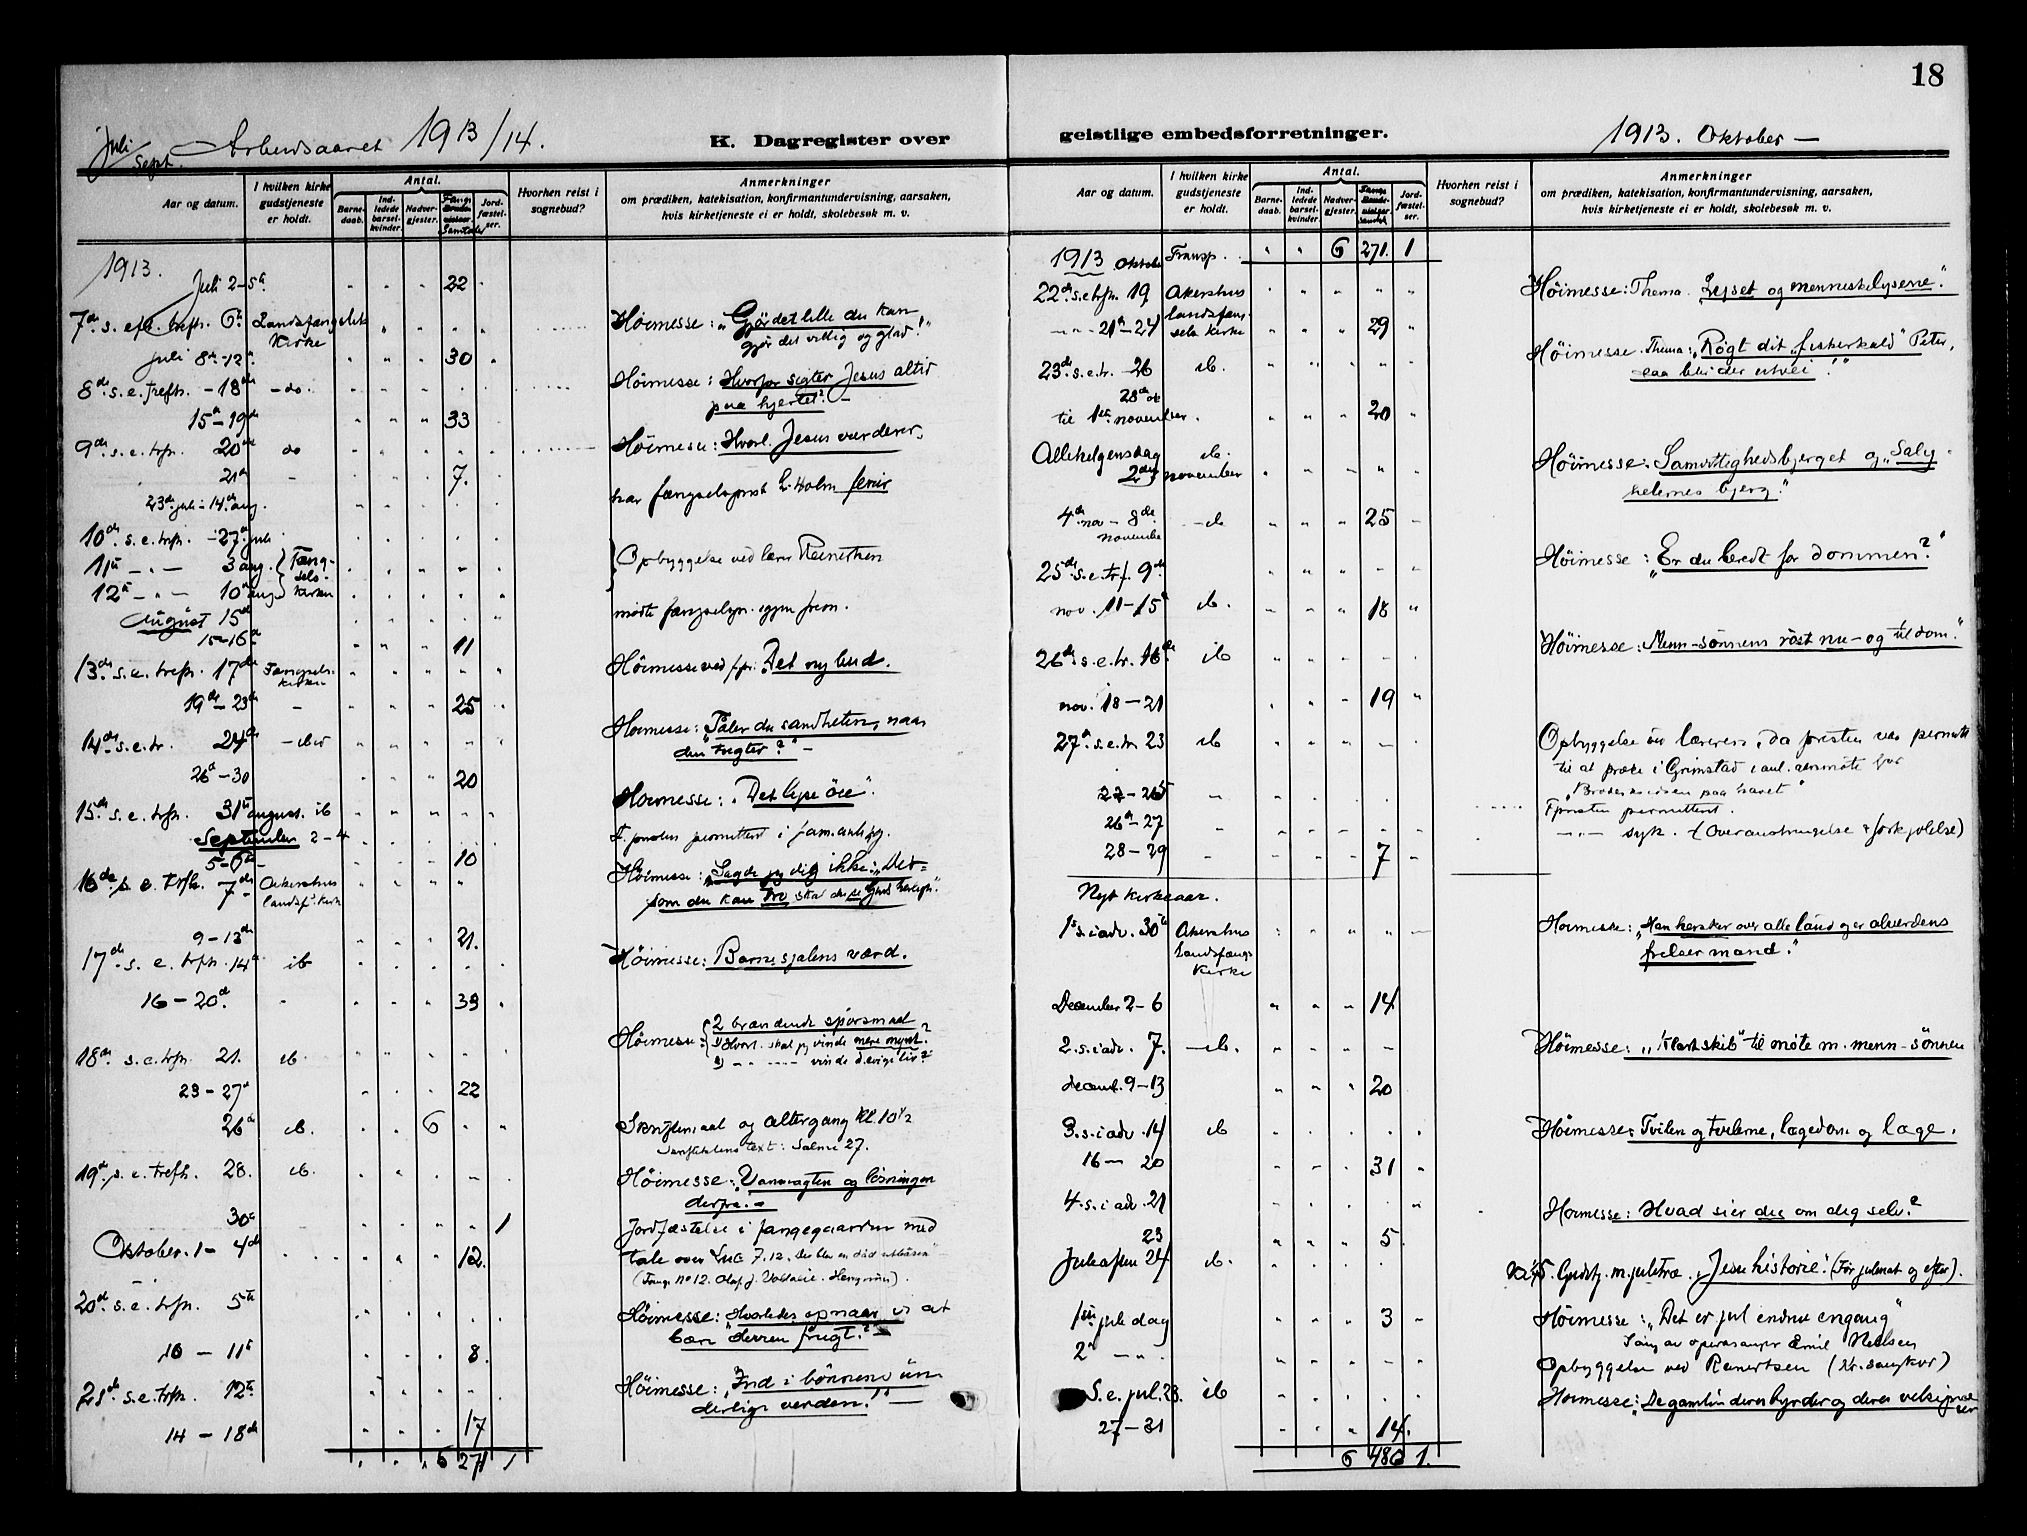 18
Juli
Sept. Arbeidsaaret 1913/14. K. Dagregister over
Aar og datum. I hvilken kirke gudstjeneste er holdt. Antal. Barnedaab. Indledede barselkvinder. Nadvergjester. Fange Samtaler Jordfæstelser. Hvorhen reist i sognebud? Anmerkninger
om prædiken, katekisation, konfirmantundervisning, aarsaken, hvis kirketjeneste ei er holdt, skolebesøk m. v.
1913.
Juli 2-5te 22
7de s. eft. trefh. 6te Landsfængslets Kirke Høimesse: "Gjør det lille du kan
gjør det villig og glad!"
juli 8de-12te 30
8de s. e. trefh. -13de -do- Høimesse: Hvorfor sigter Jesus altid
paa hjertet? -
15de-19de 33
9de s. e. trfh. 20de do Høimesse: Hvorl. Jesus vurderer.
21de - 7.
23de juli-14de aug. har fængselsprest L. Holm ferie
10de s. e. trfh. -27de juli
11te -"- 3 aug. Fængselskirken Opbyggelse ved lærer Reinertsen
12te -"- 10de aug.
August 15de møtte fængselspr. igjen frem.
15-16de 11
13de s. e. trefh. 17de Fængselskirken Høimesse ved fpr: Det ny bud.
19de-23de - 25
14de s. e. tr. 24de - ibid Høimesse: "Tåler du sandheten, naar
du frygter?" -
26de-30 20
15de s. e. trfh. 31te august. ib Høimesse: "Det lyse öie".
September 2-4 F. presten permittert i fam.anligg.
5-6te - 10
16de s. e. trfh. 7de Akershus landsf. kirke Høimesse: "Sagde jeg dig ikke: Dersom du kan tro skal du se Guds herligh."
9-13de 21.
17de s. e. trfh. 14de ib Høimesse: Barnesjælens værd.
16-20de - 33
18de s. e. trfh. 21. ib. Høimesse: 2 brændende spørsmaal
1) Hvorl. skal jeg vinde mere mynt?
2) -"- -"- vinde d. evige liv?
23-27de 22
26de ib. 6 Skriftemaal og altergang Kl. 10 1/2
Skriftetalens text: Salme 27.
19de s. e. trefh. 28. ib. Høimesse: "Vanvagten og løsningen
derfra. -
30te 1 Jordfæstelse i fangegaarden med
Oktober. 1-4de 12. tale over Luc 7.12.
20de s. e. trfh. 5te Høimesse: Hvorledes opnaar vi at
bære "Herren frugt?"
10 - 11te 8.
21de s. e. trfh. 12te Høimesse: "Ind i bønnens underlige verden!" -
14 - 18de 17
6 271 1
geistlige embedsforretninger. 1913. Oktober -
Aar og datum. I hvilken kirke gudstjeneste er holdt. Antal. Barnedaab. Indledede barselkvinder. Nadvergjester. Jordfæstelser. Hvorhen reist i sognebud? Anmerkninger
om prædiken, katekisation, konfirmantundervisning, aarsaken, hvis kirketjeneste ei er holdt, skolebesøk m. v.
1913 Oktober Transp. 6 271. 1
22de s. e. tfh. 19 Akershus landsfængsels kirke Høimesse: Thema. Lyset og menneskelysene".
-"- 21de-24 29
23de s. e. tr. 26 ib. Høimesse. Thema: "Røgt dit "fiskerkald" Peter,
saa blir der utvei!"
28de ok
til 1ste november. 20
Allehelgensdag ib. Høimesse. Samvittighedsbjerget og "Saligheternes bjerg."
2den november
4de nov - 8de november -ib 25
25de s. e. trf. 9de Høimesse: "Er du beredt for dommen?"
nov. 11-15de ib. 18
26de s. e. tr. 16de ib Høimesse: Menn-sønnens røst nu - og til dom."
nov. 18-21 19
27de s. e. tr. 23 ib Opbyggelse ved læreren, da presten var permitt
til at præke i Grimstad i anl. aarsmøte for
"Broderkredsen paa havet"
22-25 - Fpresten permittert.
26de-27 - -"- syk. (Overanstrengelse & forkjølelse)
28-29 - 7
Nyt kirkeaar.
1s. s. i adv. 30te Akershus Landsfængs Kirke Høimesse: "Han hersker over alle land og er alverdens
frelsermand."
December 2-6 14
2. s. i adv. 7. -ib. Høimesse: "Klart skib" til møte m. menn-sønnen
decemb. 9-13 20
3. s. i adv. 14 ib Høimesse: Tvilen og tvilerne, lægedom og læge.
16 - 20 31
4. s. i adv. 21 Høimesse: Hvad sier du om dig selv?
23 5
Juleaften 24 ib. Kl. 5. Gudstj. m. juletræ. "Jesu historie". (Før julemat og efter).
1ste juledag 3 Høimesse: "Det er jul endnu engang"
Sang av operasanger Emil Nielsen
2de -"- Opbyggelse ved Reinertsen (Kr. sangkor)
S. e. jul. 28. ib Høimesse: De gamle: deres byrder og deres velsignelser
27-31 14.
6 486 1.